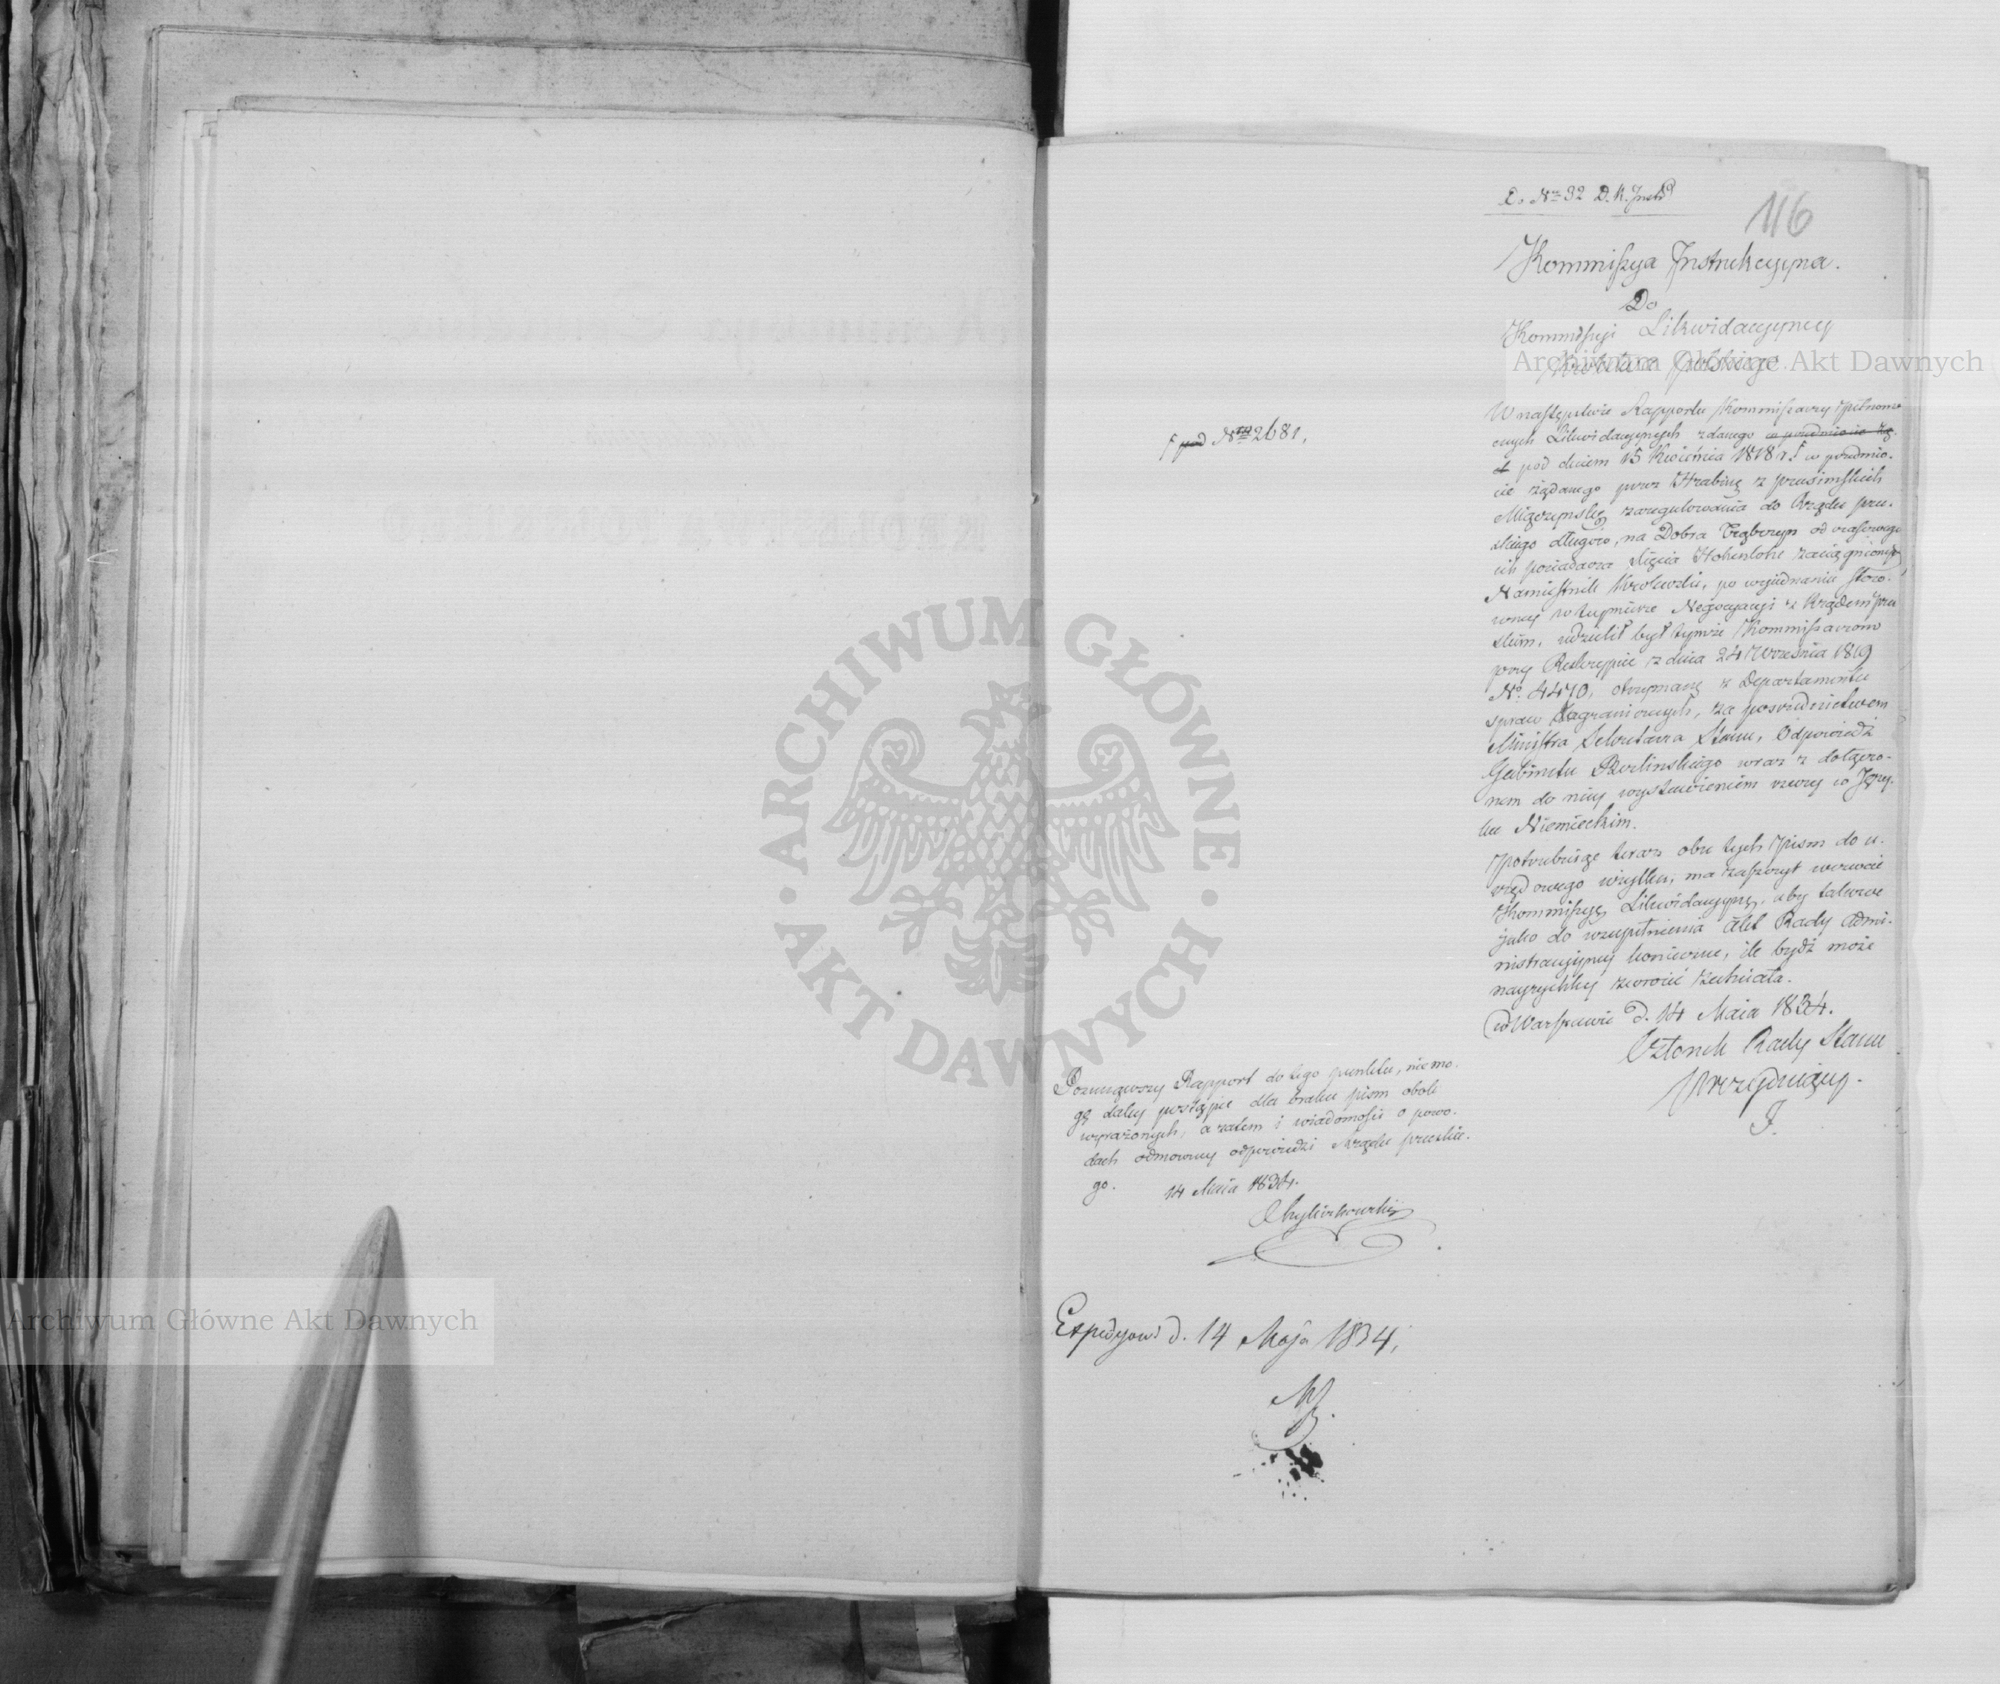 Do Nro 32 D. K. Instr.
116
Kommissya Instrukcyyna.
Do
Kommissyi Likwidacyyney
Królestwa Polskiego
W następstwie Rapportu Kommissarzy Pełnomo-
cnych Likwidacyynych zdanego
pod dniem 15 Kwietnia 1818 r. w przedmio-
cie żądanego przez Hrabinę z Prusimskich
Miączyńskę zaregulowania do Rządu Pru-
skiego długów, na Dobra Trąbczyn od czasowego
ich posiadacza Xięcia Hohenlohe zaciągnionych
Namiestnik Królewski, po wyiednaniu stoso-
wney w tey mierze Negocyacyi z Rządem Pru-
skim, udzielił był tymże Kommissarzom
przy Reskrypcie z dnia 24 Września 1819
No 4470, otrzymanę z Departamentu
spraw Zagranicznych, za pośrednictwem
Ministra Sekretarza Stanu, Odpowiedź
Gabinetu Berlińskiego wraz z dołączo-
nem do niey wystawieniem rzeczy w Języ-
ku Niemieckim.
Potrzebuiąc teraz obu tych Pism do u-
rzędowego użytku, ma zaszczyt wezwać
Kommissyę Likwidacyyną, aby takowe
jako do uzupełnienia Akt Rady Admi-
nistracyyney konieczne, ile bydź może
nayrychley zwrócić zechciała.
w Warszawie d. 14 Maia 1834.
Członek Rady Stanu
Prezyduiący.
F.
pod Nrem 2681,
Poczuąwszy Rapport do tego punktu, nie mo-
gę daley postąpić dla braku pism obok
wyrażonych, a zatem i wiadomości o powo-
dach odmowney odpowiedzi Rządu Pruskie-
go.
14 Maia 1834.
Chyliczkowski
Expedyow. d. 14 Maja 1834,
Archiwum Główne Akt Dawnych
Archiwum Główne Akt Dawnych
ARCHIWUM GŁÓWNE · AKT DAWNYCH ·